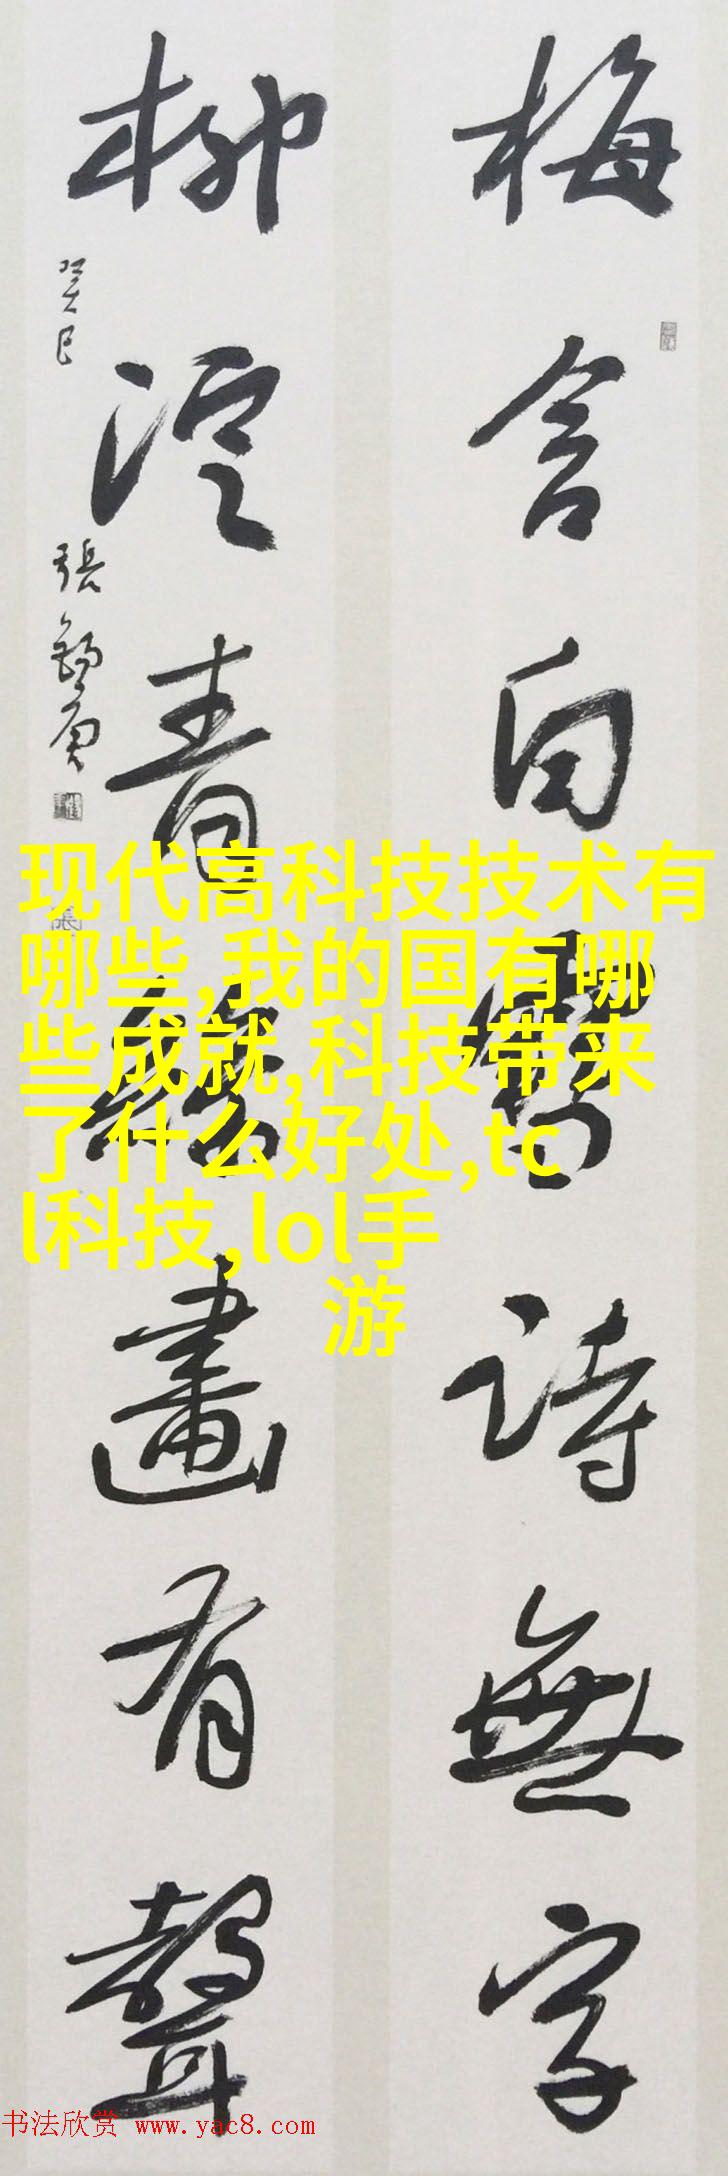 梅含白雪詩無字
柳浥青煙畫有聲
癸巳
張錫庚
现代高科技技术有
哪些,我的国有哪
些成就,科技带来
了什么好处,tc
l科技,lol手
游
书法欣赏 www.yac8.com